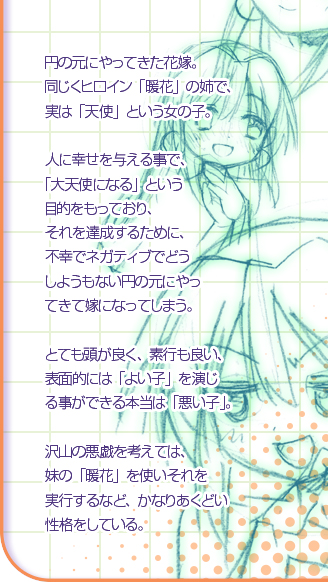 円の元にやってきた花嫁。
同じくヒロイン「暖花」の姉で、
実は「天使」という女の子。
人に幸せを与える事で、
「大天使になる」という
目的をもっており、
それを達成するために、
不幸でネガティブでどう
しようもない円の元にやっ
てきて嫁になってしまう。
とても頭が良く、素行も良い、
表面的には「よい子」を演じ
る事ができる本当は「悪い子」。
沢山の悪戯を考えては、
妹の「暖花」を使いそれを
実行するなど、かなりあくどい
性格をしている。